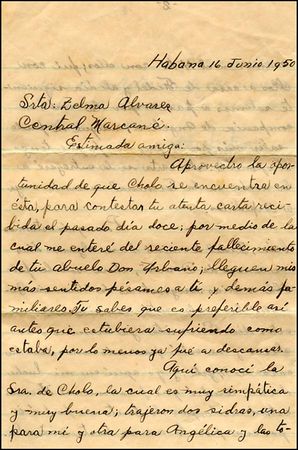 Habana 16 Junio 1950
Srta: Zelma Alvarez
Central Marcané.
Estimada amiga:
Aprovecho la opor-
tunidad de que Cholo se encuentra en
ésta, para contestar tu atenta carta reci-
bida el pasado día doce; por medio de la
cual me enteré del reciente fallecimiento
de tu abuelo Don Urbano; lleguen mis
más sentidos pésames a ti y demás fa-
miliares. Tu sabes que es preferible así
antes que estubiera sufriendo como
estaba, por lo menos ya fué a descansar.
Aquí conocí la
Sra. de Cholo, la cual es muy simpática
y muy buena; trajeron dos sidras, una
para mi y otra para Angélica y las to-